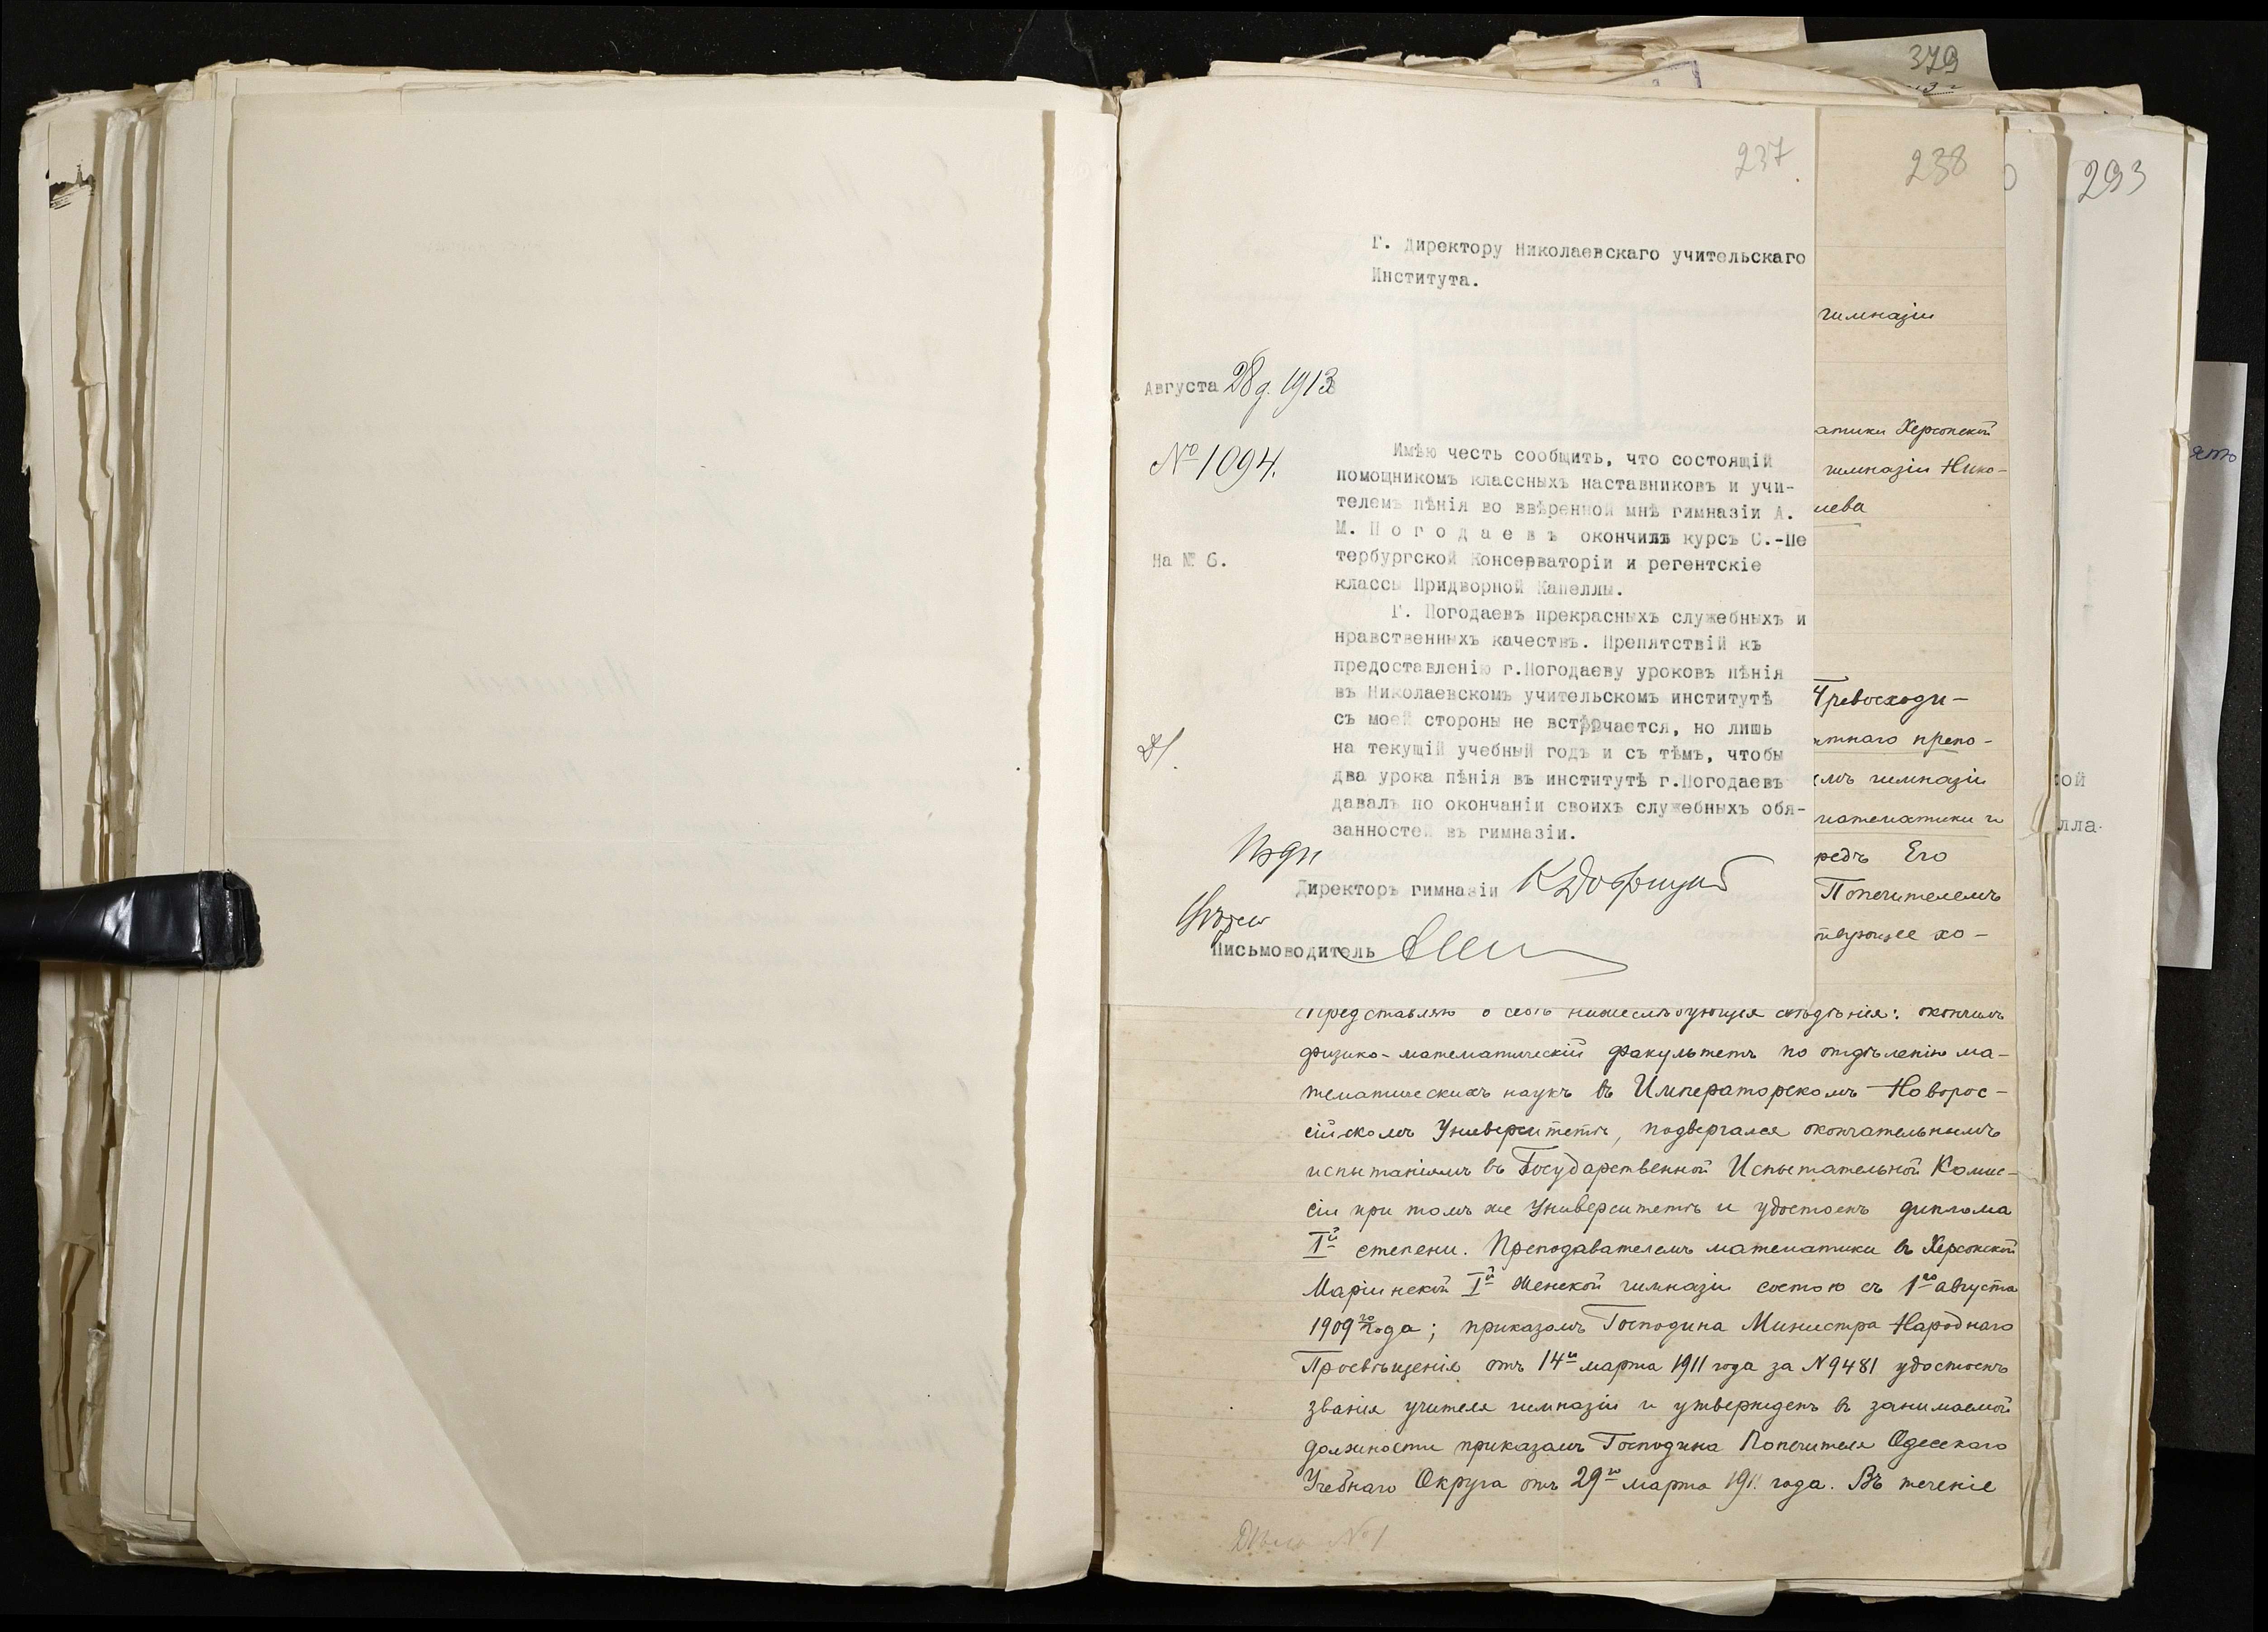 379
237
238
293
Г. Директору Николаевскаго учительскаго
Института.
Августа 28 д. 1913
№ 1094.
На № 6.
Имѣю честь сообщить, что состоящій
помощникомъ классныхъ наставниковъ и учи-
телемъ пѣнія во ввѣренной мнѣ гимназіи А.
М. П о г о д а е в ъ окончилъ курсъ С.-Пе
тербургской Консерваторіи и регентскіе
классы Придворной Капеллы.
Г. Погодаевъ прекрасныхъ служебныхъ и
нравственныхъ качествъ. Препятствій къ
предоставленію г.Погодаеву уроковъ пѣнія
въ Николаевскомъ учительскомъ институтѣ
съ моей стороны не встрѣчается, но лишь
на текущій учебный годъ и съ тѣмъ, чтобы
два урока пѣнія въ институтѣ г.Погодаевъ
давалъ по окончаніи своихъ служебныхъ обя-
занностей въ гимназіи.
Директоръ гимназіи
Письмоводитель
гимназіи
атики Херсонской
гимназіи Нико-
иева
Превосходи-
атнаго препо-
емъ гимназіи
математики и
редъ Его
Попечителемъ
твующее хо-
Представляю о себѣ нижеслѣдующія свѣдѣнія: окончилъ
физико-математическій факультетъ по отдѣленію ма-
тематическихъ наукъ въ Императорскомъ Новорос-
сійскомъ Университетѣ, подвергался окончательнымъ
испытаніямъ въ Государственной Испытательной Комис-
сіи при томъ же Университетѣ и удостоенъ диплома
Iй степени. Преподавателемъ математики въ Херсонской
Маріинской Iй Женской гимназіи состою съ 1го августа
1909го года; приказомъ Господина Министра Народнаго
Просвѣщенія отъ 14го марта 1911 года за N 9481 удостоенъ
званія учителя гимназіи и утвержденъ въ занимаемой
должности приказомъ Господина Попечителя Одесскаго
Учебнаго Округа отъ 29го марта 1911 года. Въ теченіе
Дѣло № 1
кой
лла-
ять